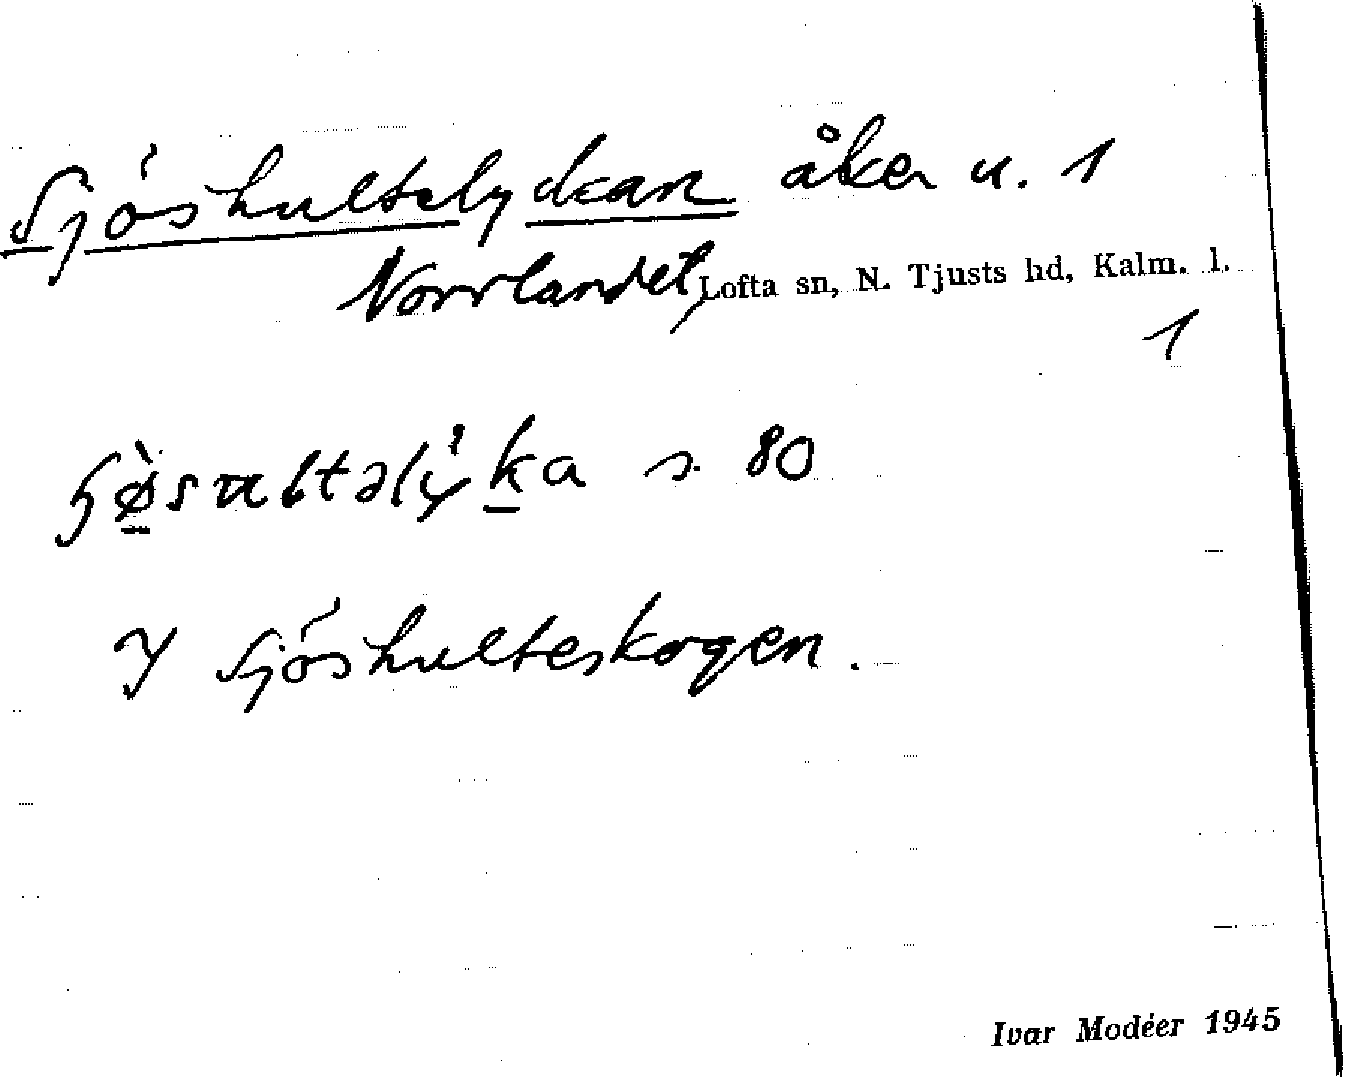 Sjöshultelyckan åker u. 1
Norrlandet, Lofta sn, N. Tjusts hd, Kalm. l.
1
s. 80
I Sjöshulteskogen.
Ivar Modéer 1945